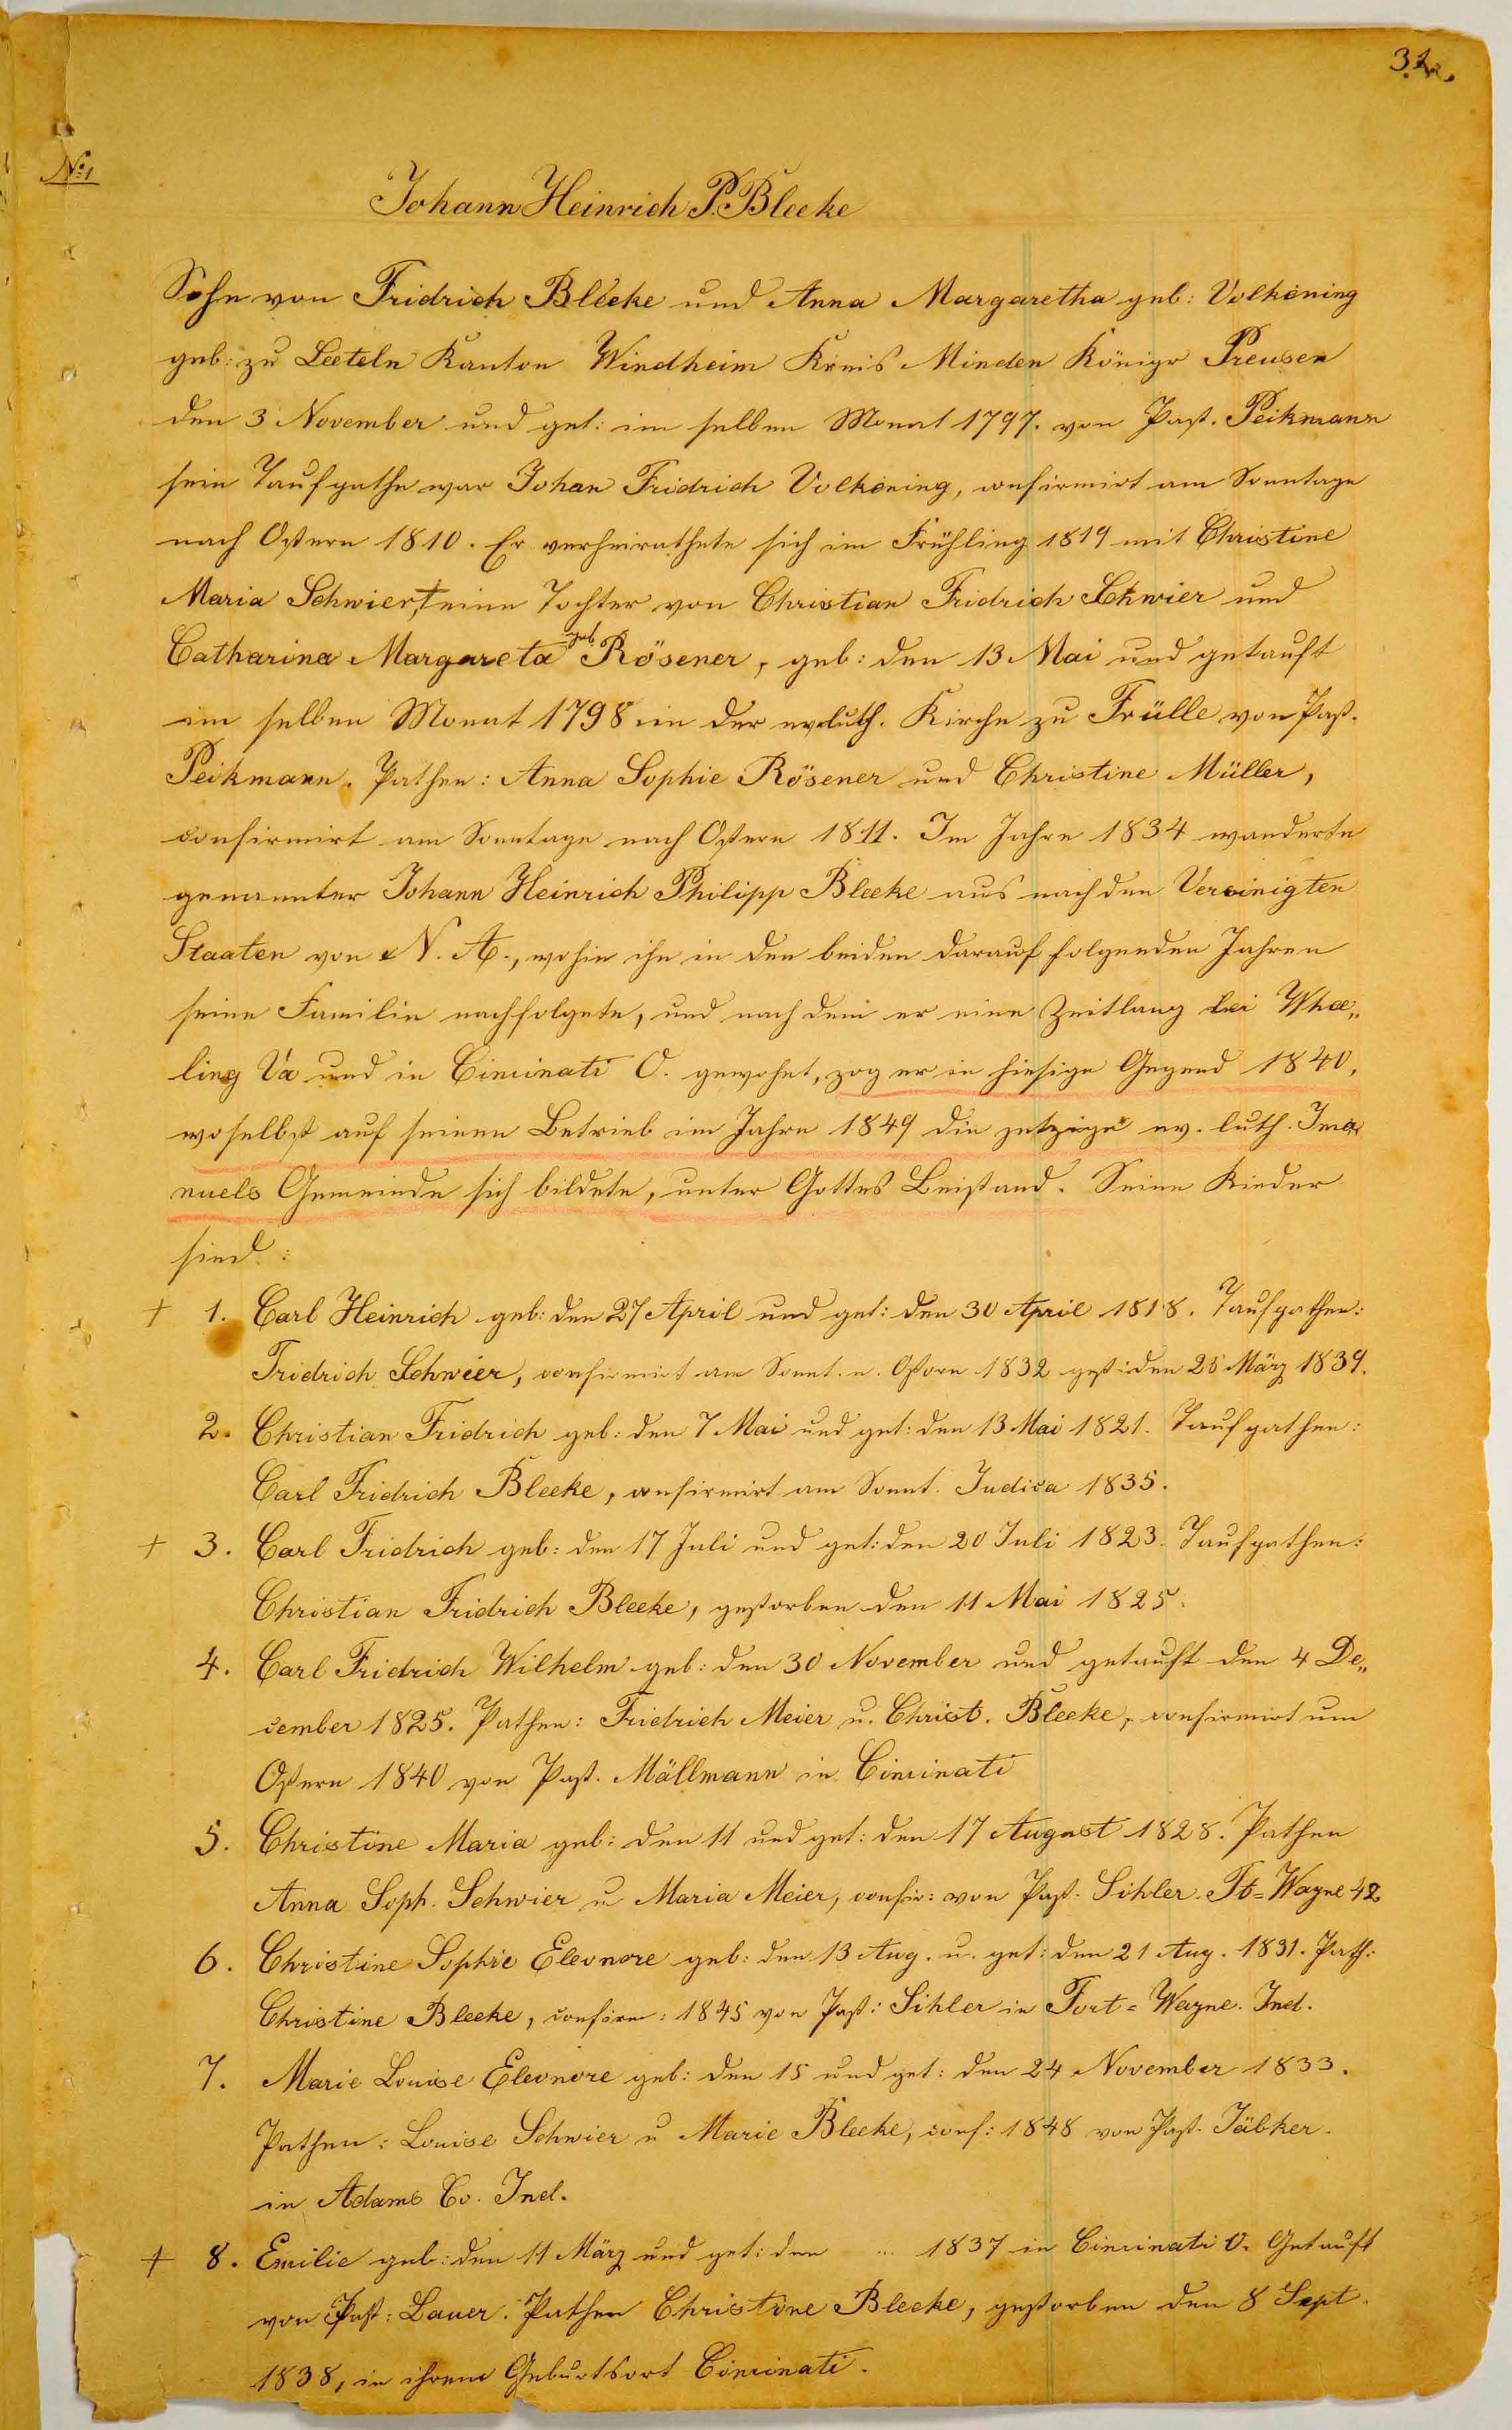 32.
No. 1
Johann Heinrich P. Bleeke
Sohn von Fridrich Bleeke und Anna Margaretha geb: Volkening
geb: zu Leeteln Kanton Windheim Kreis Minden Königr Preusen
den 3 November und get: im selben Monat 1797. von Past. Peikmann
sein Taufpathe war Johan Fridrich Volkening, confirmirt am Sonntage
nach Ostern 1810. Er verheirathete sich im Frühling 1819 mit Christine
Maria Schwier, † eine Tochter von Christian Fridrich Schwier und
Catharina Margareta geb. Rösener, geb: den 13 Mai und getauft
im selben Monat 1798 in der ev. luth. Kirche zu Frülle von Past.
Peikmann. Pathen: Anna Sophie Rösener und Christine Müller,
confirmirt am Sonntage nach Ostern 1811. Im Jahre 1834 wanderte
genannter Johann Heinrich Philipp Bleeke aus nach den Vereinigten
Staaten von N. A., wohin ihn in den beiden darauf folgenden Jahren
seine Familie nachfolgete, und nach dem er eine Zeitlang bei Whee„
ling Va und in Cincinati O. gewohnt, zog er in hiesige Gegend 1840,
woselbst auf seinen Betrieb im Jahre 1849 die jetzige ev. luth. Ima„
nuels Gemeinde sich bildete, unter Gottes Beistand. Seine Kinder
sind:
† 1. Carl Heinrich geb: den 27 April und get: den 30 April 1818. Taufpathen:
Fridrich Schwier, confirmirt am Sonnt. n. Ostern 1832 gest: den 25 März 1839.
2. Christian Fridrich geb: den 7 Mai und get: den 13 Mai 1821. Taufpathen:
Carl Fridrich Bleeke, confirmirt am Sonnt. Judica 1835.
† 3. Carl Fridrich geb: den 17 Juli und get: den 20 Juli 1823. Taufpathen:
Christian Fridrich Bleeke, gestorben den 11 Mai 1825.
4. Carl Fridrich Wilhelm geb: den 30 November und getauft den 4 De„
cember 1825. Pathen: Fridrich Meier u. Christ. Bleeke, confirmirt um
Ostern 1840 von Past. Mällmann in Cincinati
5. Christine Maria geb: den 11 und get: den 17 August 1828. Pathen
Anna Soph. Schwier u Maria Meier, confir: von Past. Sihler. Ft=Wayne 42
6. Christine Sophie Eleonore geb: den 13 Aug. u. get: den 21 Aug. 1831. Path:
Christine Bleeke, confirm: 1845 von Past: Sihler in Fort=Wayne. Ind.
7. Marie Louise Eleonore geb: den 15 und get: den 24 November 1833.
Pathen: Louise Schwier u Marie Bleeke, conf: 1848 von Past. Jäbker.
in Adams Co. Ind.
† 8. Emilie geb: den 11 März und get: den ... 1837 in Cincinati O. Getauft
von Past: Lauer. Pathen Christine Bleeke, gestorben den 8 Sept.
1838, in ihrem Geburtsort Cincinati.